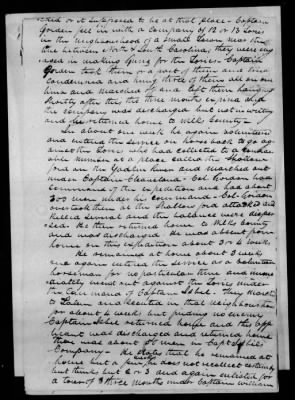 and it supposed to be at that place - Captain
Gorden fell in with a Company of 12 or 13 Tories
in the neighborhood of a small Town near the
line between North & South Carolina, they were eng
aged in making for the Tories - Captain
Gorden took them or a part of them and tried
condemned and hung three of them on one
limb and marched off and left them hanging
Shortly after this the three months expired and
the Company was discharged but not in writing
and he returned home to Wilks County -
In about one week he again volunteered
and entered the service on horse back to go ag
ainst the Tories who had collected to a consider
able number at a place called the Shallow
ford on the Yadkin River and marched out
under Captain Cleaveland - Col Gordon had
command of the expedition and had about
300 men under his command - Col. Gordon
overtook them at the Shallow ford attacked and
killed several and the balance were disper
sed. He then returned home to Wilks County
and was discharged. He was absent from
home on this expedition about 3 or 4 weeks.
He remained at home about 2 weeks
and again entered the service as a volunteer
horseman for no particular time and imme
diately went out against the Tories under
the command of Captain They march
to Salem and scouted in that neighbourhoo
for about 4 weeks but finding no enemy
Captain returned home and this app
licant was discharged and returned home
there was about 50 men in Capt
Company - He states that he remained at
home but a he does not recollect certain
but thinks but 2 or 3 and again enlisted for
a tour of three months under Captain William